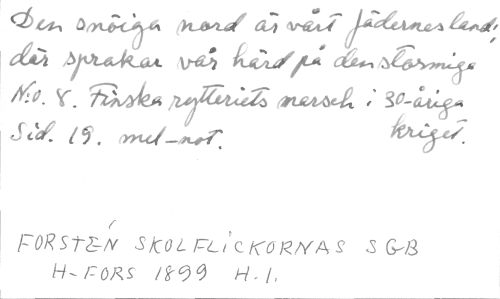 Den snöiga nord är vårt fädernesland;
där sprakar vår härd på den stormiga
N:o. 8. Finska rytteriets marsch i 30-åriga
Sid. 19. mel-not. kriget.
FORSTÉN SKOLFLICKORNAS SGB
H-FORS 1899 H.1.